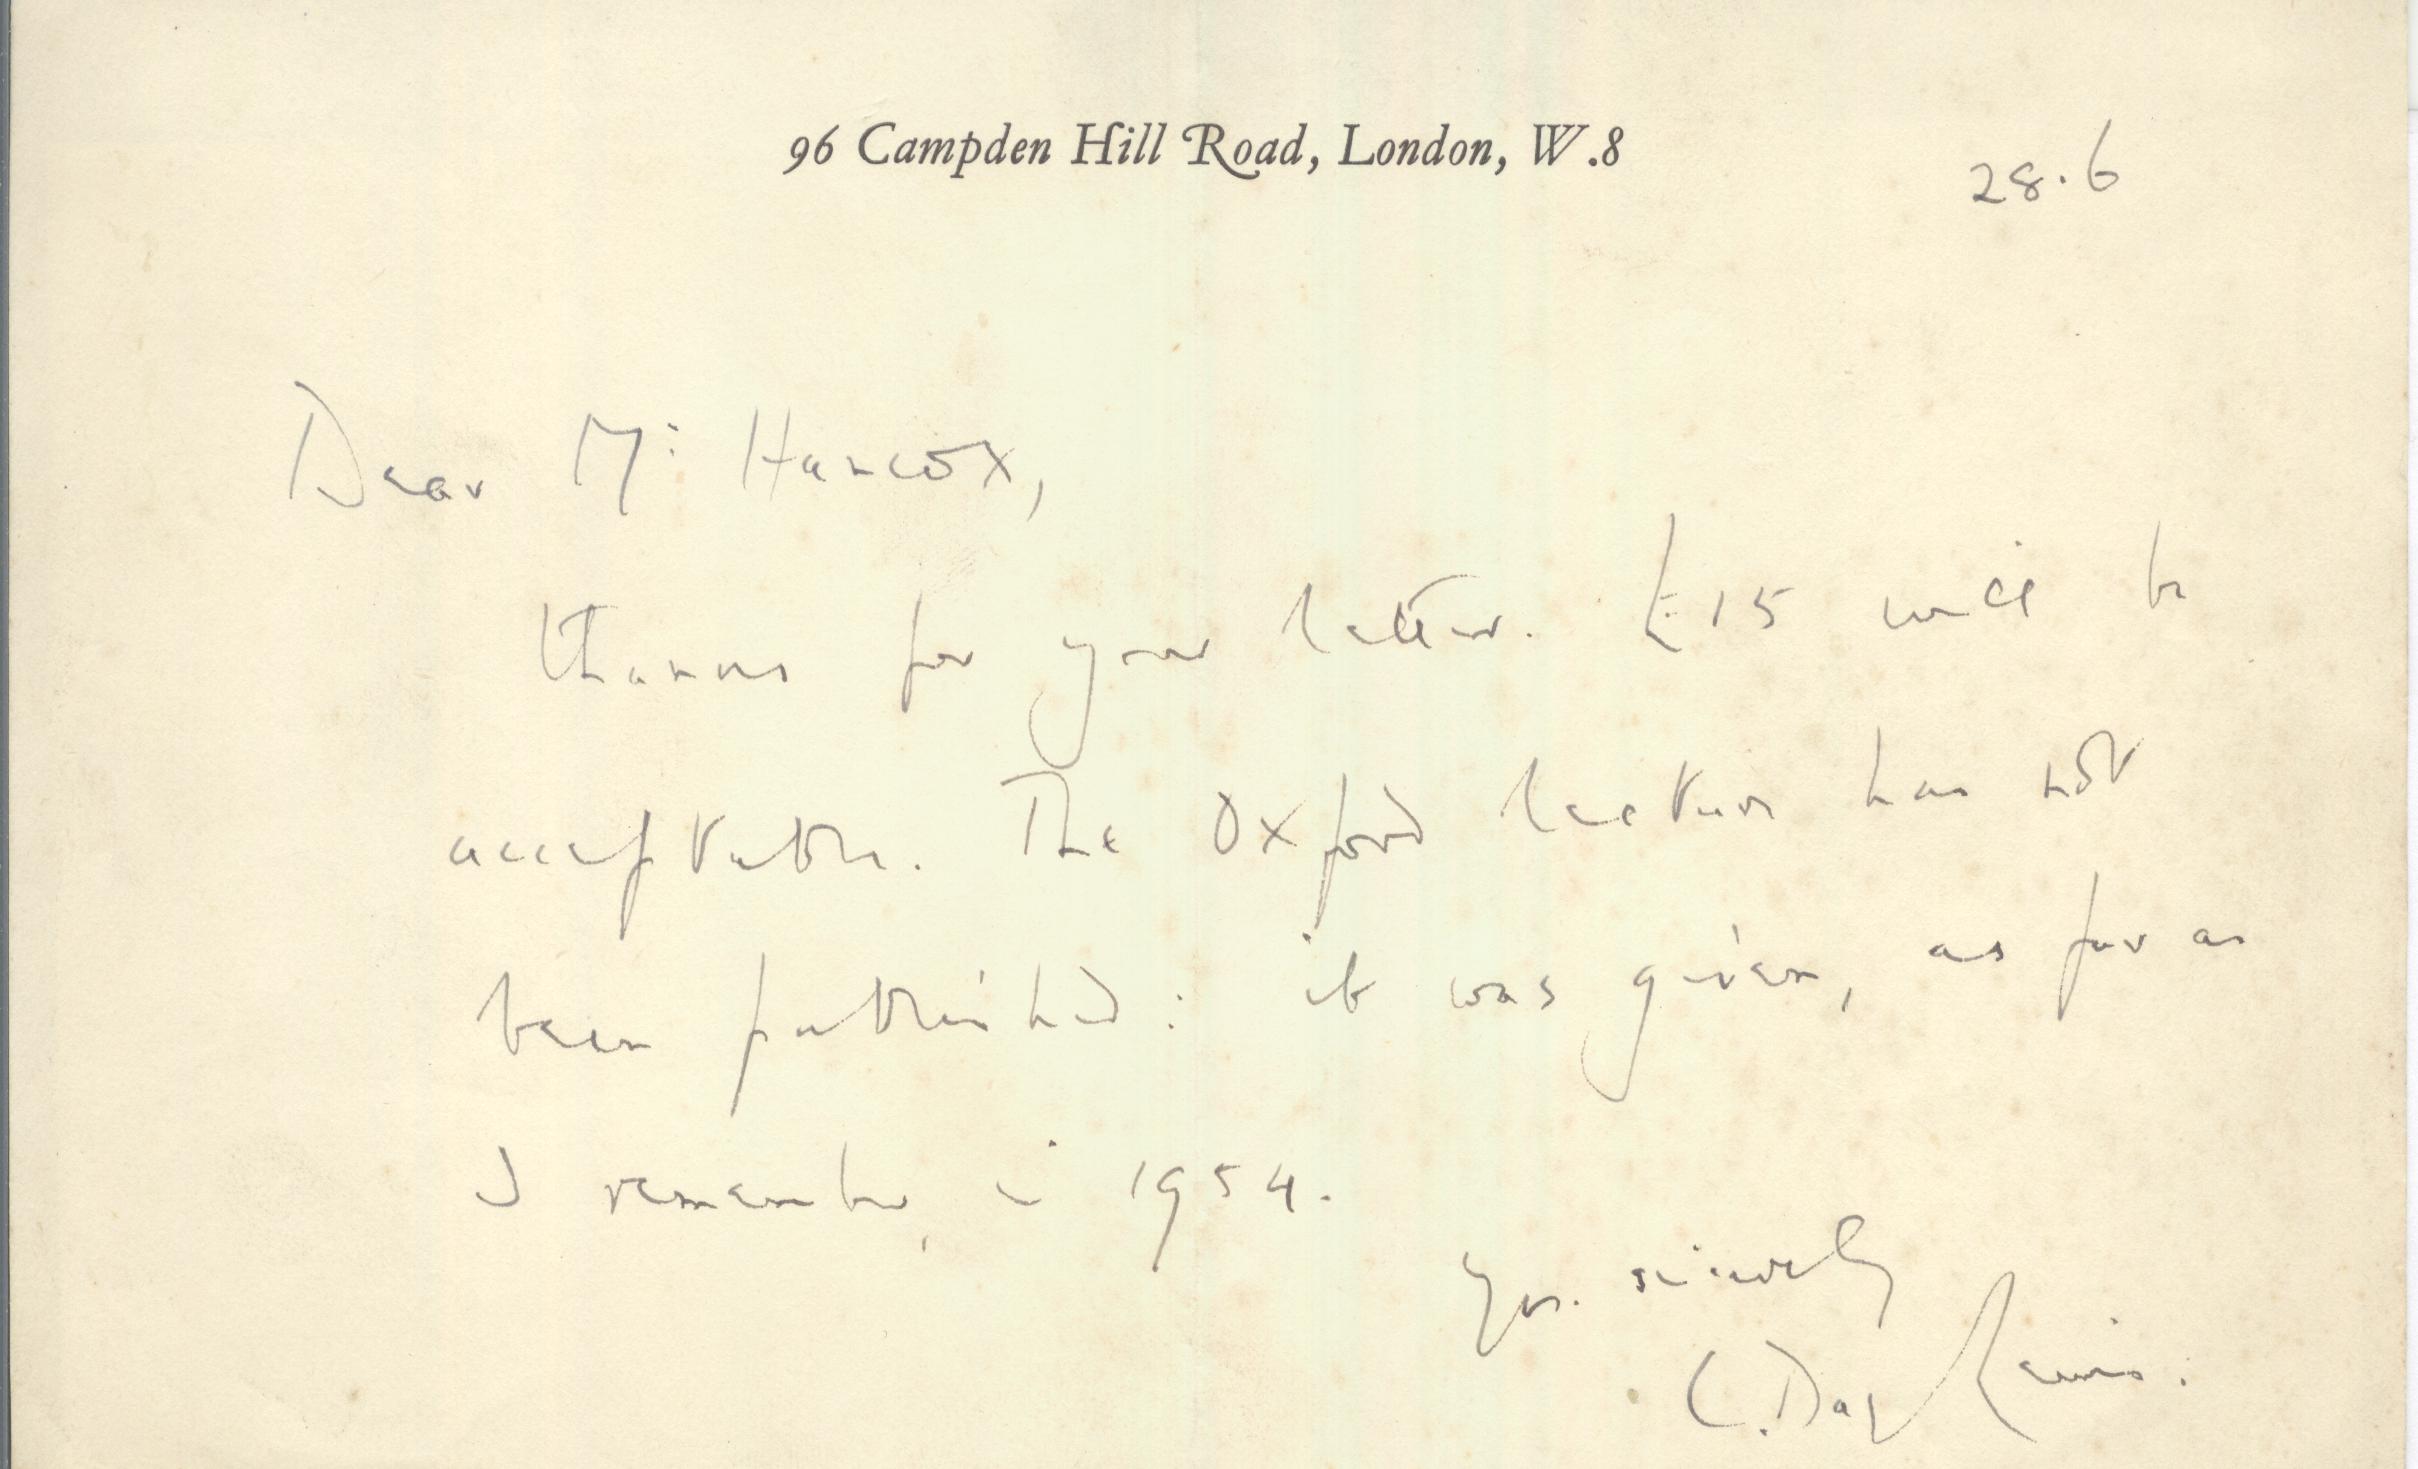 96 Campden Hill Road, London, W.8
28.6
Dear Mr Hancox,
thanks for your letter. £15 will be
acceptable. The Oxford lecture has not
been published: it was given, as far as
I remember, in 1954.
Yrs. sincerely
C. Day Lewis.